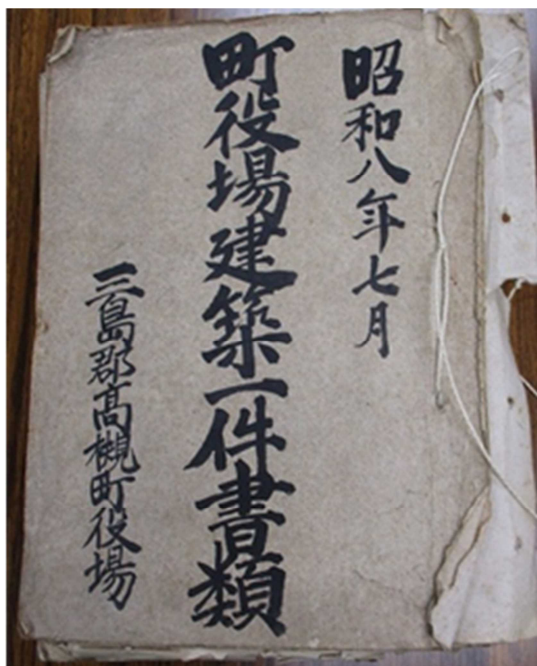 昭和八年七月
町役場建築一件書類
三島郡高槻町役場